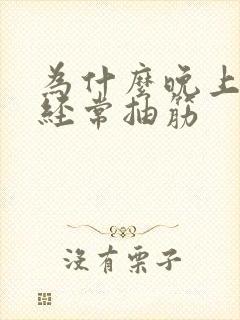 为什麼晚上
经常抽筋
沒有栗子